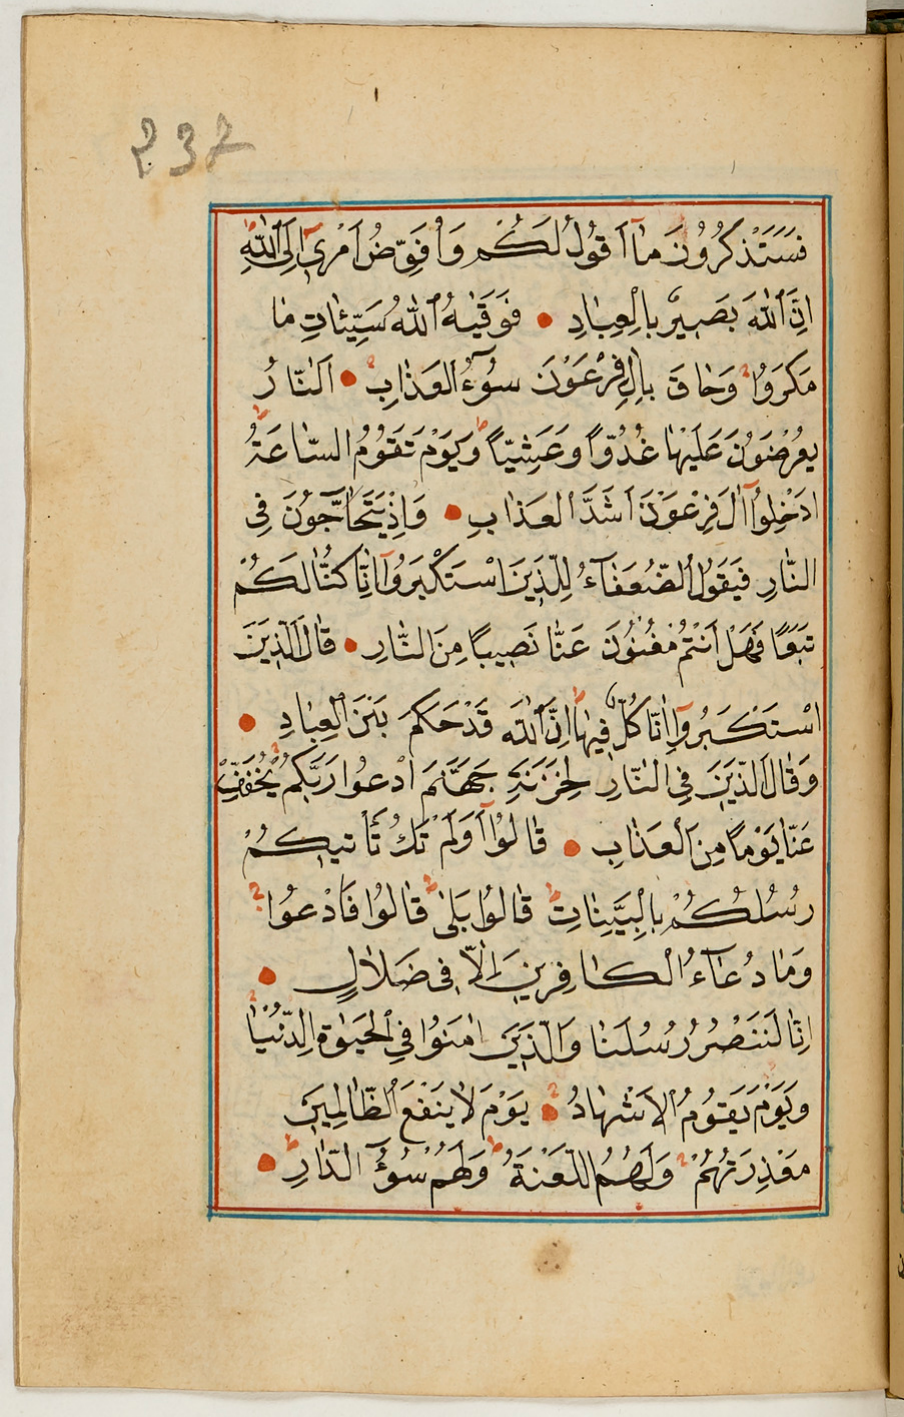 237
فَسَتَذْكُرُونَ مَٓا اَقُولُ لَكُمْ وَاُفَوِّضُ اَمْرِٓي اِلَى اللّٰهِ
اِنَّ اللّٰهَ بَصِيرٌ بِالْعِبَادِ فَوَقٰيهُ اللّٰهُ سَيِّئَاتِ مَا
مَكَرُوا وَحَاقَ بِاٰلِ فِرْعَوْنَ سُوٓءُ الْعَذَابِ اَلنَّارُ
يُعْرَضُونَ عَلَيْهَا غُدُوًّا وَعَشِيًّا وَيَوْمَ تَقُومُ السَّاعَةُ
اَدْخِلُٓوا اٰلَ فِرْعَوْنَ اَشَدَّ الْعَذَابِ وَاِذْ يَتَحَٓاجُّونَ فِي
النَّارِ فَيَقُولُ الضُّعَفَٓاءُ لِلَّذِينَ اسْتَكْبَرُٓوا اِنَّا كُنَّا لَكُمْ
تَبَعًا فَهَلْ اَنْتُمْ مُغْنُونَ عَنَّا نَصِيبًا مِنَ النَّارِ قَالَ الَّذِينَ
اسْتَكْبَرُٓوا اِنَّا كُلٌّ فِيهَا اِنَّ اللّٰهَ قَدْ حَكَمَ بَيْنَ الْعِبَادِ
وَقَالَ الَّذِينَ فِي النَّارِ لِخَزَنَةِ جَهَنَّمَ ادْعُوا رَبَّكُمْ يُخَفِّفْ
عَنَّا يَوْمًا مِنَ الْعَذَابِ قَالُٓوا اَوَلَمْ تَكُ تَأْتِيكُمْ
رُسُلُكُمْ بِالْبَيِّنَاتِ قَالُوا بَلٰى قَالُوا فَادْعُوا
وَمَا دُعَٓاءُ الْكَافِرِينَ اِلَّا فِي ضَلَالٍ
اِنَّا لَنَنْصُرُ رُسُلَنَا وَالَّذِينَ اٰمَنُوا فِي الْحَيٰوةِ الدُّنْيَا
وَيَوْمَ يَقُومُ الْاَشْهَادُ يَوْمَ لَا يَنْفَعُ الظَّالِمِينَ
مَعْذِرَتُهُمْ وَلَهُمُ اللَّعْنَةُ وَلَهُمْ سُوٓءُ الدَّارِ